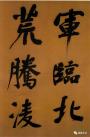 軍臨北
荒騰淩